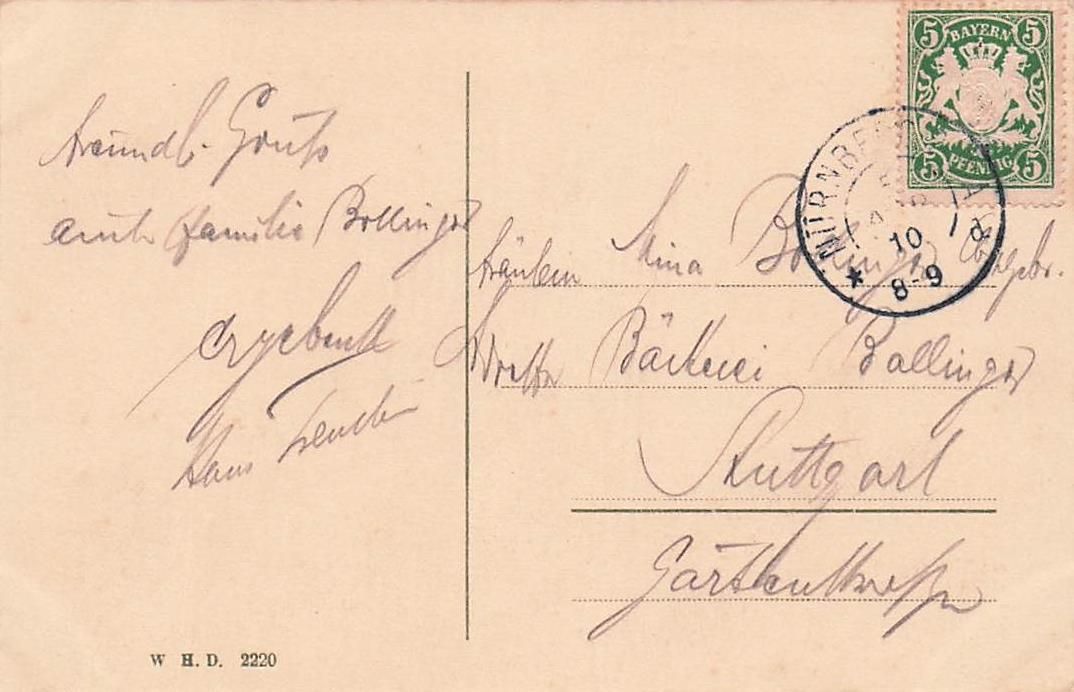 Freundl. Gruß
auch Familie Bollinger
ergebenst
Hans
Fräulein Mina Bollinger
Adresse Bäckerei Bollinger
Stuttgart
W H. D. 2220
5 BAYERN 5
5 PFENNIG 5
NÜRNBERG
10
8-9